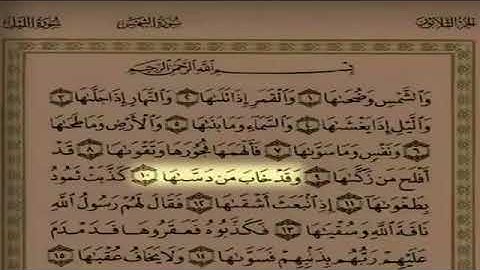 الجزء الثلاثون سورة الشمس سورة الليل
بِسْمِ ٱللَّهِ ٱلرَّحْمَٰنِ ٱلرَّحِيمِ
وَٱلشَّمْسِ وَضُحَىٰهَا ١ وَٱلْقَمَرِ إِذَا تَلَىٰهَا ٢ وَٱلنَّهَارِ إِذَا جَلَّىٰهَا ٣
وَٱلَّيْلِ إِذَا يَغْشَىٰهَا ٤ وَٱلسَّمَآءِ وَمَا بَنَىٰهَا ٥ وَٱلْأَرْضِ وَمَا طَحَىٰهَا
٦ وَنَفْسٍ وَمَا سَوَّىٰهَا ٧ فَأَلْهَمَهَا فُجُورَهَا وَتَقْوَىٰهَا ٨ قَدْ
أَفْلَحَ مَن زَكَّىٰهَا ٩ وَقَدْ خَابَ مَن دَسَّىٰهَا ١٠ كَذَّبَتْ ثَمُودُ
بِطَغْوَىٰهَآ ١١ إِذِ ٱنۢبَعَثَ أَشْقَىٰهَا ١٢ فَقَالَ لَهُمْ رَسُولُ ٱللَّهِ
نَاقَةَ ٱللَّهِ وَسُقْيَٰهَا ١٣ فَكَذَّبُوهُ فَعَقَرُوهَا فَدَمْدَمَ
عَلَيْهِمْ رَبُّهُم بِذَنۢبِهِمْ فَسَوَّىٰهَا ١٤ وَلَا يَخَافُ عُقْبَٰهَا ١٥